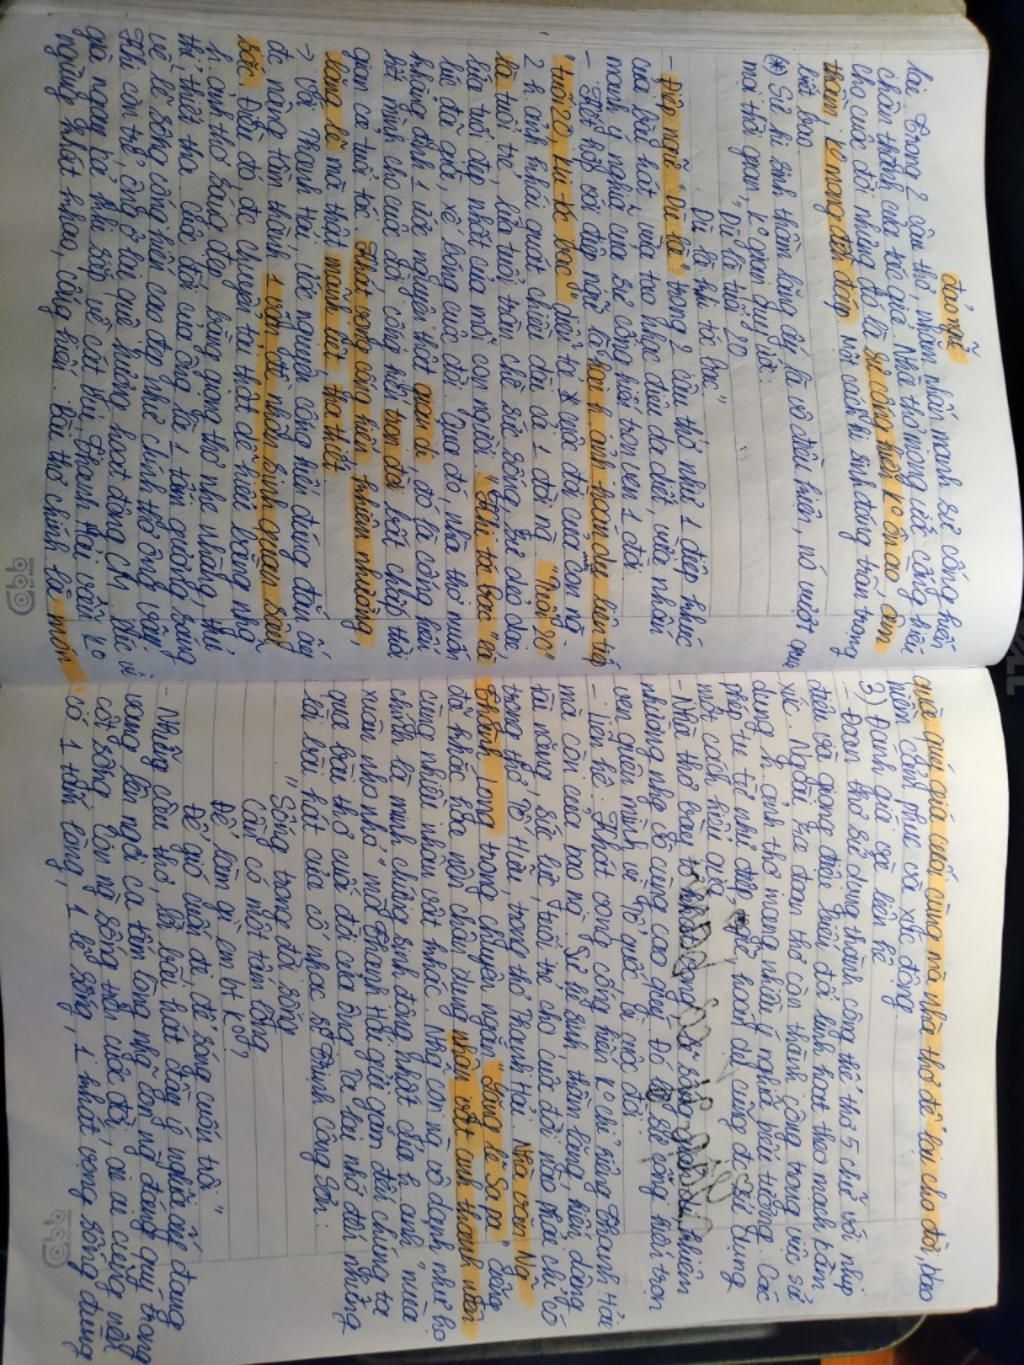 đảo ngữ
lại. Trong 2 câu thơ, nhằm nhấn mạnh sự cống hiến
chân thành của tác giả. Nhà thơ mong ước cống hiến
cho cuộc đời nhưng đó là sự cống hiến k° ồn ào, âm
thầm, k° mong đền đáp. Một cách hi sinh đáng trân trọng
biết bao.
(*) Sự hi sinh thầm lặng ấy là vô điều kiện, nó vượt qua
mọi thời gian, k° gian, tuổi:
"Dù là tuổi 20
Dù là khi tóc bạc"
- Điệp ngữ "Dù là" trong 2 câu thơ như 1 điệp khúc
của bài hát, vừa tạo nhạc điệu da diết, vừa nhấn
mạnh ý nghĩa của sự cống hiến trọn vẹn 1 đời.
- Kết hợp với điệp ngữ là hai h. ảnh hoán dụ liên tiếp
"tuổi 20, khi tóc bạc" diễn tả cuộc đời của con ng
2 h. ảnh khái quát chiều dài cả 1 đời ng. "Tuổi 20"
là tuổi trẻ, lứa tuổi tràn trề sức sống, sự dẻo dai,
lứa tuổi đẹp nhất của mỗi con người. "Khi tóc bạc" là
khi đã già, xế bóng cuộc đời. Qua đó, nhà thơ muốn
khẳng định 1 ước nguyện thật giản dị, đó là cống hiến
hết mình cho cuộc đời, cống hiến trọn đời bất chấp thời
gian cả tuổi tác. Khát vọng cống hiến khiêm nhường,
lặng lẽ mà thật mãnh liệt, tha thiết.
-> Với Thanh Hải, ước nguyện cống hiến đúng đắn ấy
đc nâng tầm thành 1 vấn đề nhân sinh quan sâu
sắc. Điều đó, đc chuyển tải thật dễ hiểu bằng những
h. ảnh thơ sáng đẹp, bằng giọng thơ nhẹ nhàng, thủ
thỉ, thiết tha. Cuộc đời của ông là 1 tấm gương sáng
về lẽ sống cống hiến cao đẹp như chính thơ ông vậy.
Khi còn trẻ, ông ở lại quê hương hoạt động CM. Lúc về
già, ngay cả khi sắp về cát bụi, Thanh Hải vẫn k°
ngừng khát khao, cống hiến. Bài thơ chính là món
quà quý giá cuối cùng mà nhà thơ để lại cho đời, bao
niềm cảm phục và xúc động.
3) Đánh giá và liên hệ
- Đoạn thơ sử dụng thành công thể thơ 5 chữ với nhịp
điệu và giọng điệu biến đổi linh hoạt theo mạch cảm
xúc. Ngoài ra đoạn thơ còn thành công trong việc sử
dụng h. ảnh thơ mang nhiều ý nghĩa biểu tượng. Các
phép tu từ như điệp, hoán dụ cũng đc sử dụng
một cách hiệu quả.
- Nhà thơ bày khiêm
nhường nhg vô cùng cao đẹp. Đó là sẽ cống hiến trọn
vẹn quên mình vì Tổ quốc, vì cuộc đời.
- Liên hệ. Khát vọng cống hiến k° chỉ riêng Thanh Hải
mà còn của bao ng. Sự hi sinh, thầm lặng, hiến dâng
tài năng, sức lực, tuổi trẻ cho cuộc đời nào phải chỉ có
trong thơ Tố Hữu, trong thơ Thanh Hải. Nhà văn Ng~
Thành Long trong truyện ngắn "Lặng lẽ Sa Pa" cũng
đã khắc họa nên chân dung nhân vật anh thanh niên
cùng nhiều nhân vật khác. Những con ng vô danh như họ
chính là minh chứng sinh động nhất cho h. ảnh "mùa
xuân nho nhỏ" mà Thanh Hải gửi gắm đến chúng ta
qua bài thơ cuối đời của ông. Ta lại nhớ đến những
lời bài hát của cố nhạc sĩ Trịnh Công Sơn:
"Sống trong đời sống
Cần có một tấm lòng
Để làm gì em bt k°?
Để gió cuốn đi, để gió cuốn trôi"
- Những câu thơ, lời bài hát đầy ý nghĩa ấy đang
vang lên ngợi ca tấm lòng những con ng đáng quý trong
cõi sống. Con ng sống trên cuộc đời, ai ai cũng nên
có 1 tấm lòng, 1 lẽ sống, 1 khát vọng sống đúng